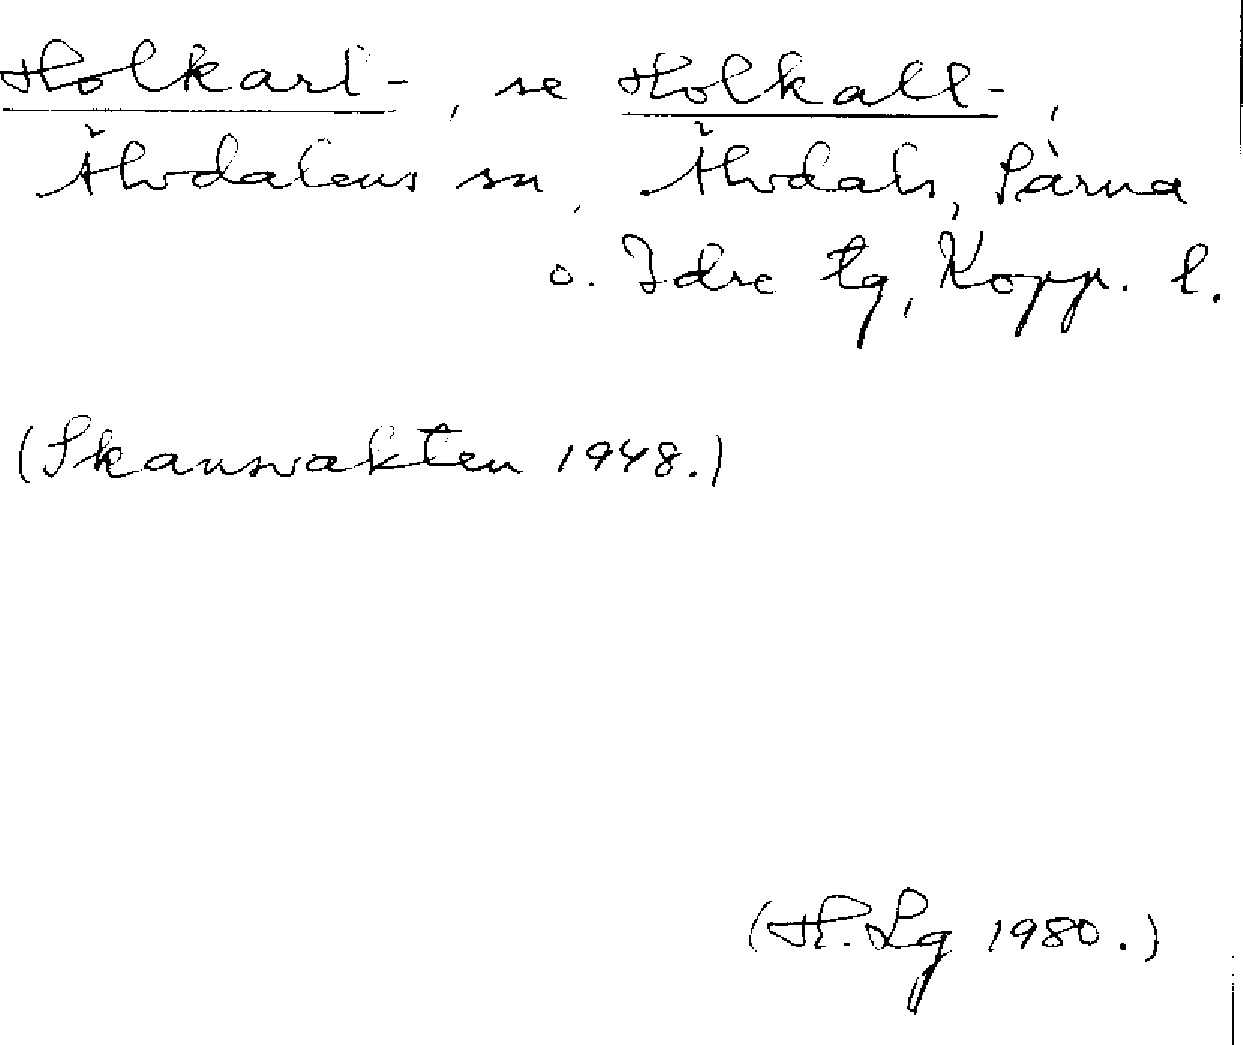 Holkarl-, se Holkall-,
Älvdalens sn, Älvdals, Särna
o. Idre tg, Kopp. l.
(Skansvakten 1948.)
(H. Lg 1980.)